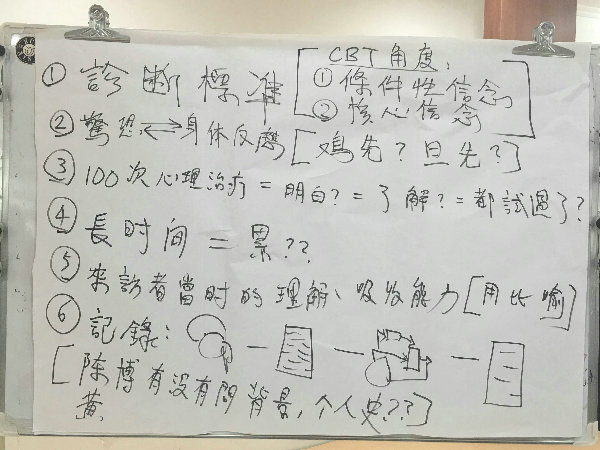 ① 診断標準
[CBT角度:
① 條件性信念
② 核心信念]
② 驚恐⇌身体反應 [鸡先?旦先?]
③ 100次心理治疗=明白?=了解?=都試過了?
④ 長时间=累??
⑤ 來訪者當时的理解、吸收能力[用比喻]
⑥ 記錄:
[陈博有没有問背景,个人史??]
黄